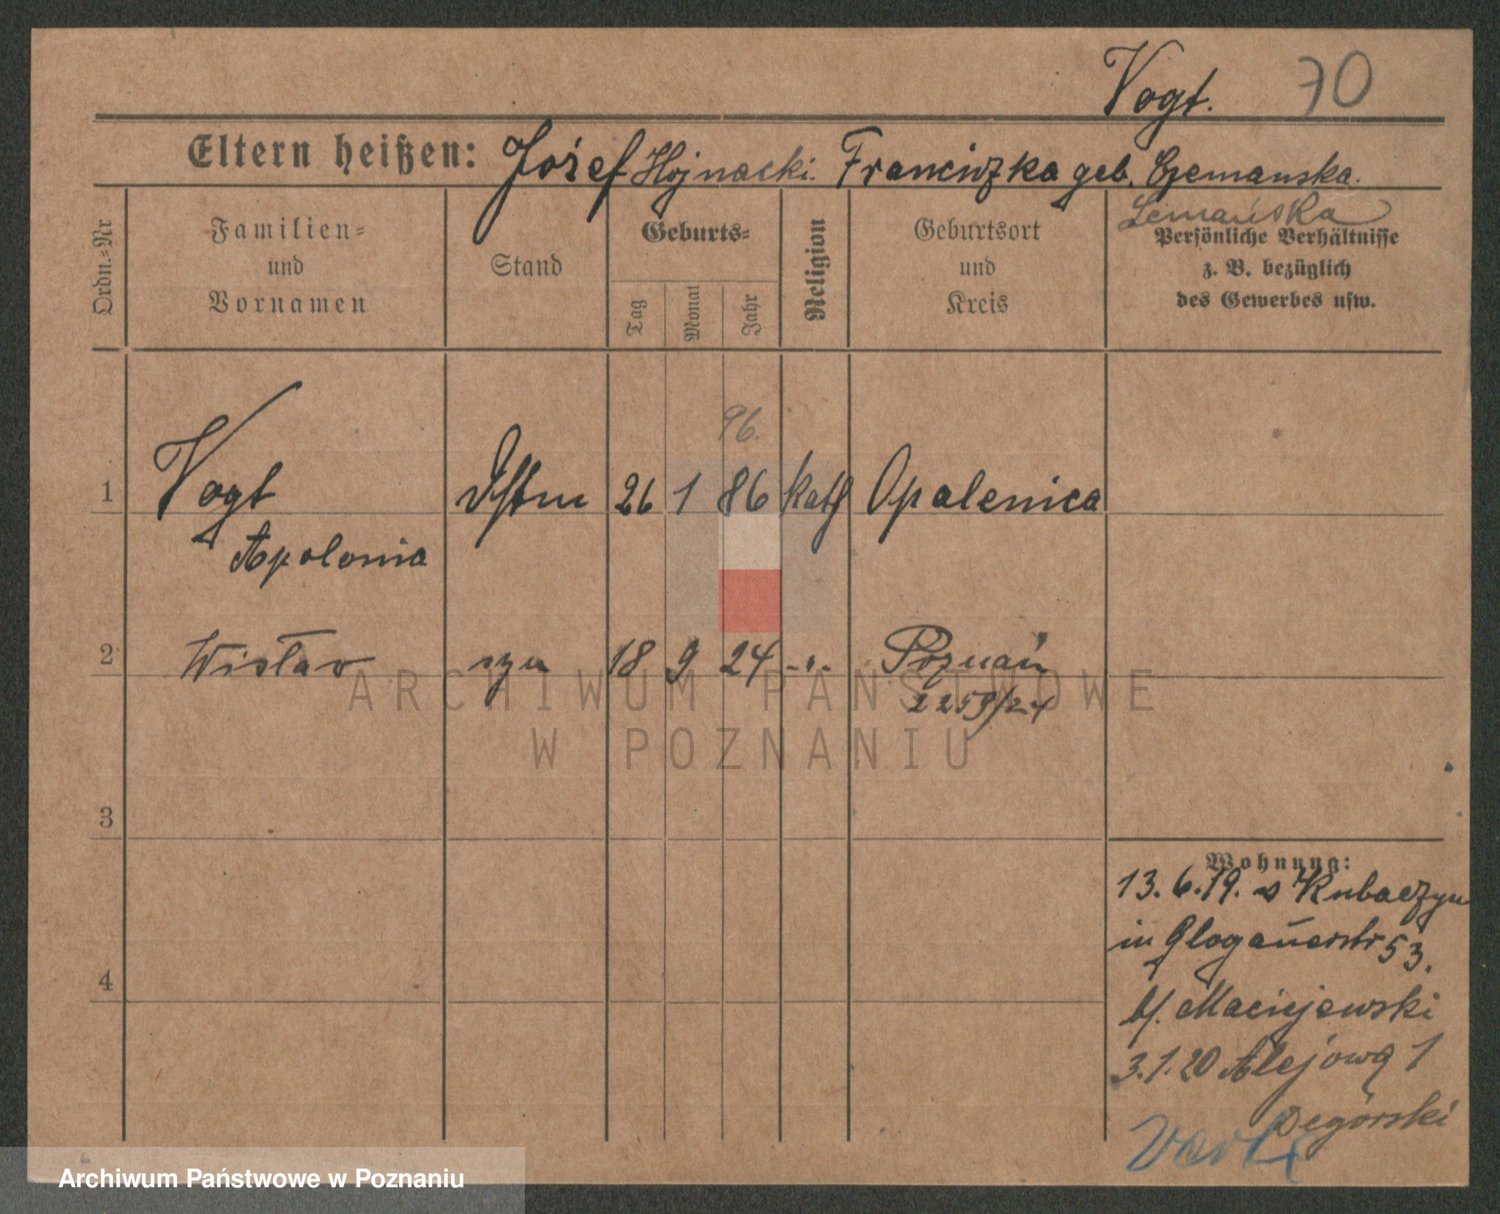 Vogt. 70
Eltern heißen: Józef Hojnacki. Franciszka geb. Czemanska.
Lemańska
Ordn.=Nr
Familien=
und
Vornamen
Stand
Geburts=
Tag
Monat
Jahr
Religion
Geburtsort
und
Kreis
Persönliche Verhältnisse
z. B. bezüglich
des Gewerbes usw.
96.
1 Vogt 26 1 86 kath Opalenica
Apolonia
2 Wisław syn 18 9 24 -"- Poznań
2259/24
3
4
Wohnung:
13.6.19. Kubaczyn
in Glogauerstr 53.
b/. Maciejewski
3.1.20 Alejowa 1
Degórski
ARCHIWUM PAŃSTWOWE
W POZNANIU
Archiwum Państwowe w Poznaniu